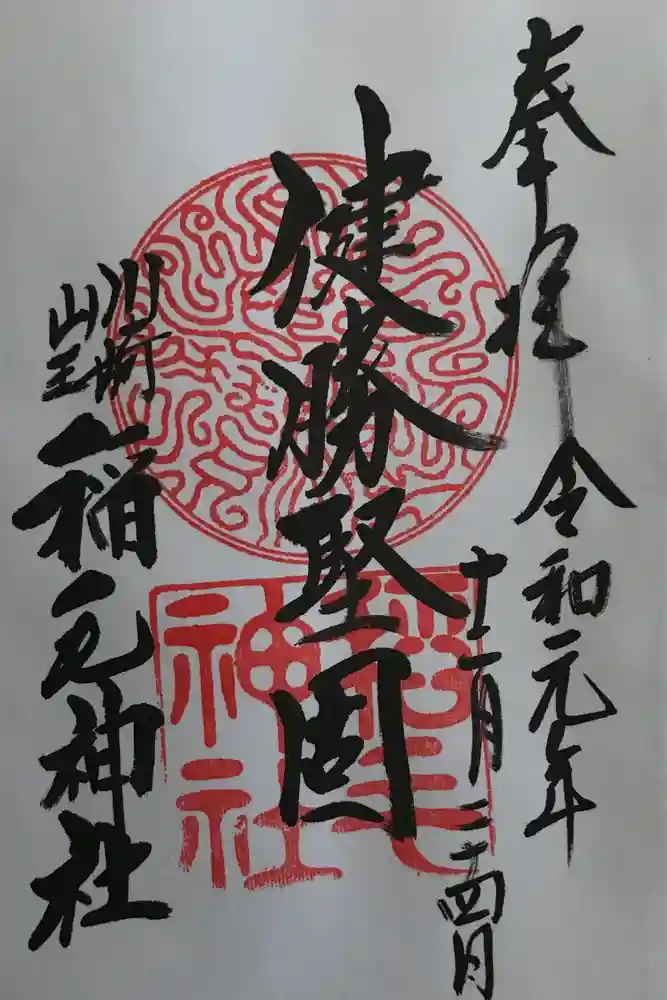 奉拝 令和元年
十二月二十四日
健勝堅固
川崎
山王
稲毛神社
稲毛
神社